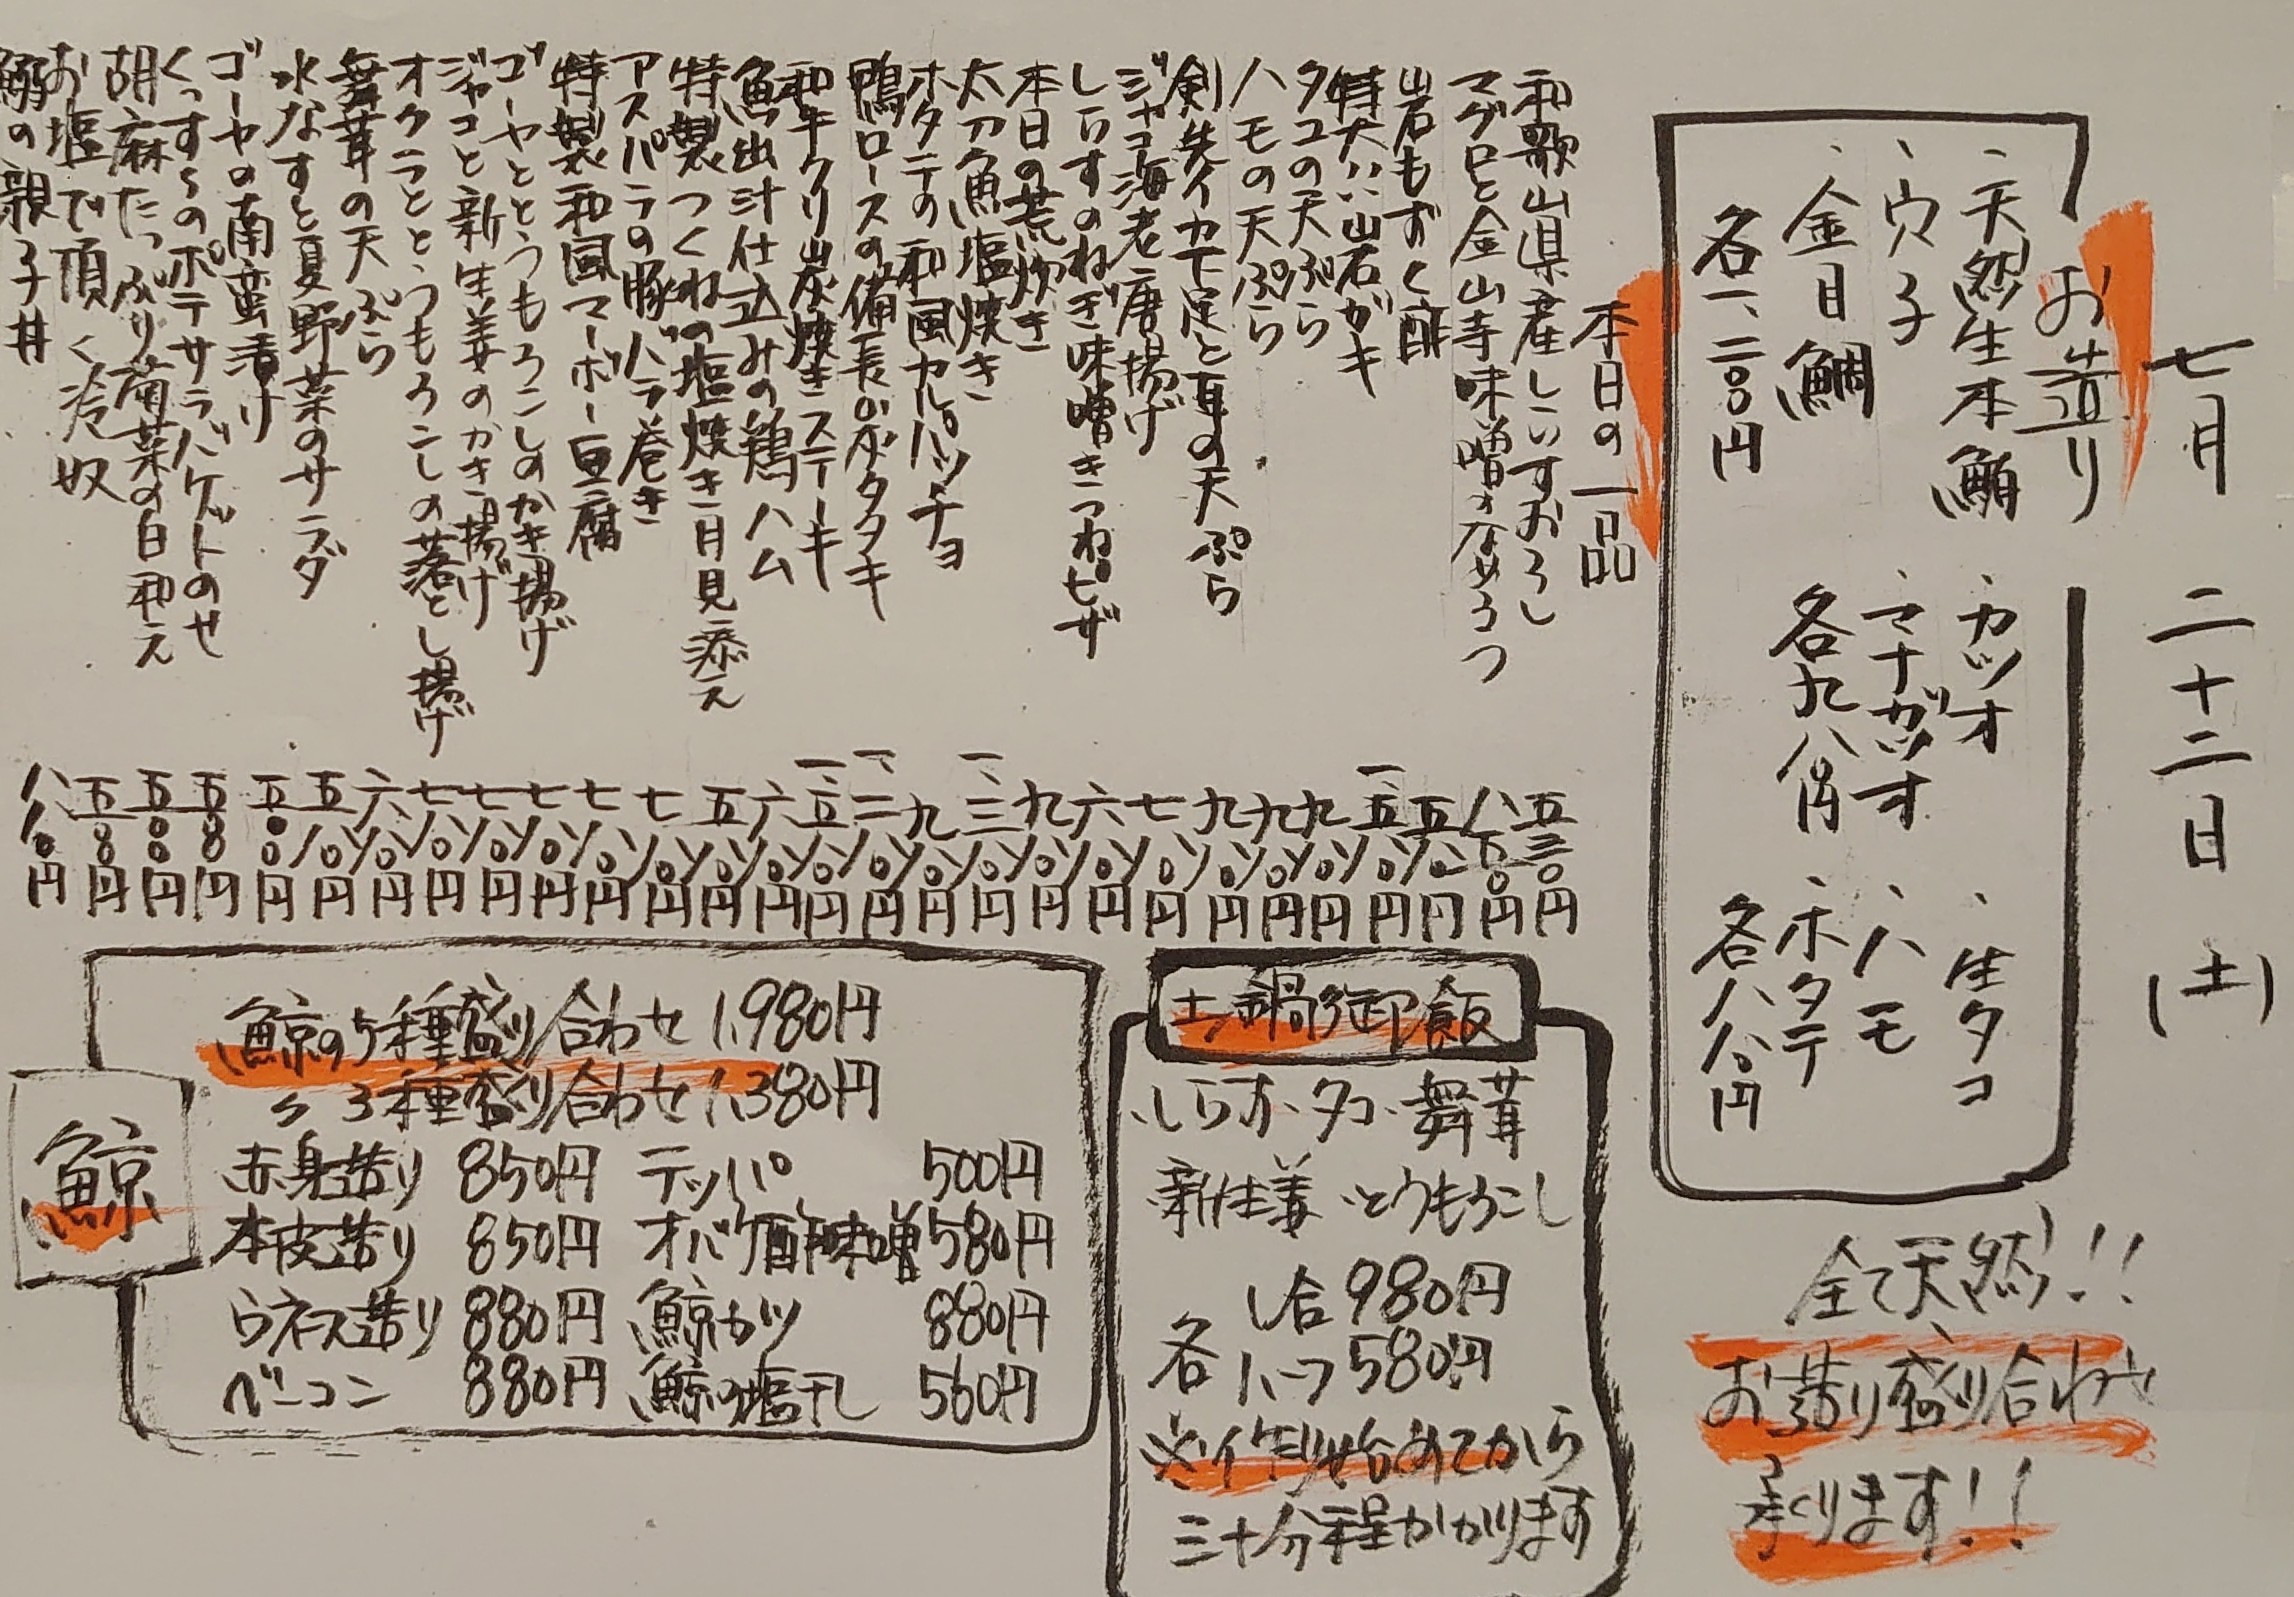 七月 二十二日 (土)
お造り
、天然生本鮪
、穴子
、金目鯛
各一、二〇〇円
、カツオ
、マナガツオ
各九八〇円
、生タコ
、ハモ
、ホタテ
各八八〇円
全て天然!!
お造り盛り合わせ
承ります!!
本日の一品
和歌山県産しらすおろし 五三〇円
マグロと金山寺味噌のなめろう 八五〇円
岩もずく酢 五八〇円
特大!!岩ガキ 一、五八〇円
タコの天ぷら 九八〇円
ハモの天ぷら 九八〇円
剣先イカ下足と耳の天ぷら 九八〇円
ジャコ海老唐揚げ 七八〇円
しらすのねぎ味噌きつねピザ 六八〇円
本日の荒炊き 九八〇円
太刀魚塩焼き 一、三八〇円
ホタテの和風カルパッチョ 九八〇円
鴨ロースの備長炭タタキ 一、二八〇円
和牛クリ炭焼きステーキ 一、五八〇円
魚出汁仕込みの鶏ハム 六八〇円
特製つくねの塩焼き月見添え 五八〇円
アスパラの豚バラ巻き 七八〇円
特製和風マーボー豆腐 七八〇円
ゴーヤととうもろこしのかき揚げ 七八〇円
ジャコと新生姜のかき揚げ 七八〇円
オクラととうもろこしの落とし揚げ 七八〇円
舞茸の天ぷら 六八〇円
水なすと夏野菜のサラダ 五八〇円
ゴーヤの南蛮漬け 五〇〇円
くっすくのポテサラバゲットのせ 五八〇円
胡麻たっぷり菊菜の白和え 五〇〇円
お塩で頂く冷奴 五〇〇円
鰯の親子丼 八八〇円
土鍋御飯
、しらす、タコ、舞茸
新生姜、とうもろこし
各 一合 980円
ハーフ 580円
※作り始めてから
三十分程かかります
鯨
鯨の5種盛り合わせ 1,980円
〃 3種盛り合わせ 1,380円
赤身造り 850円 テッパ 500円
本皮造り 850円 オバケ酢味噌 580円
ウネス造り 880円 鯨カツ 880円
ベーコン 880円 鯨の塩干し 560円